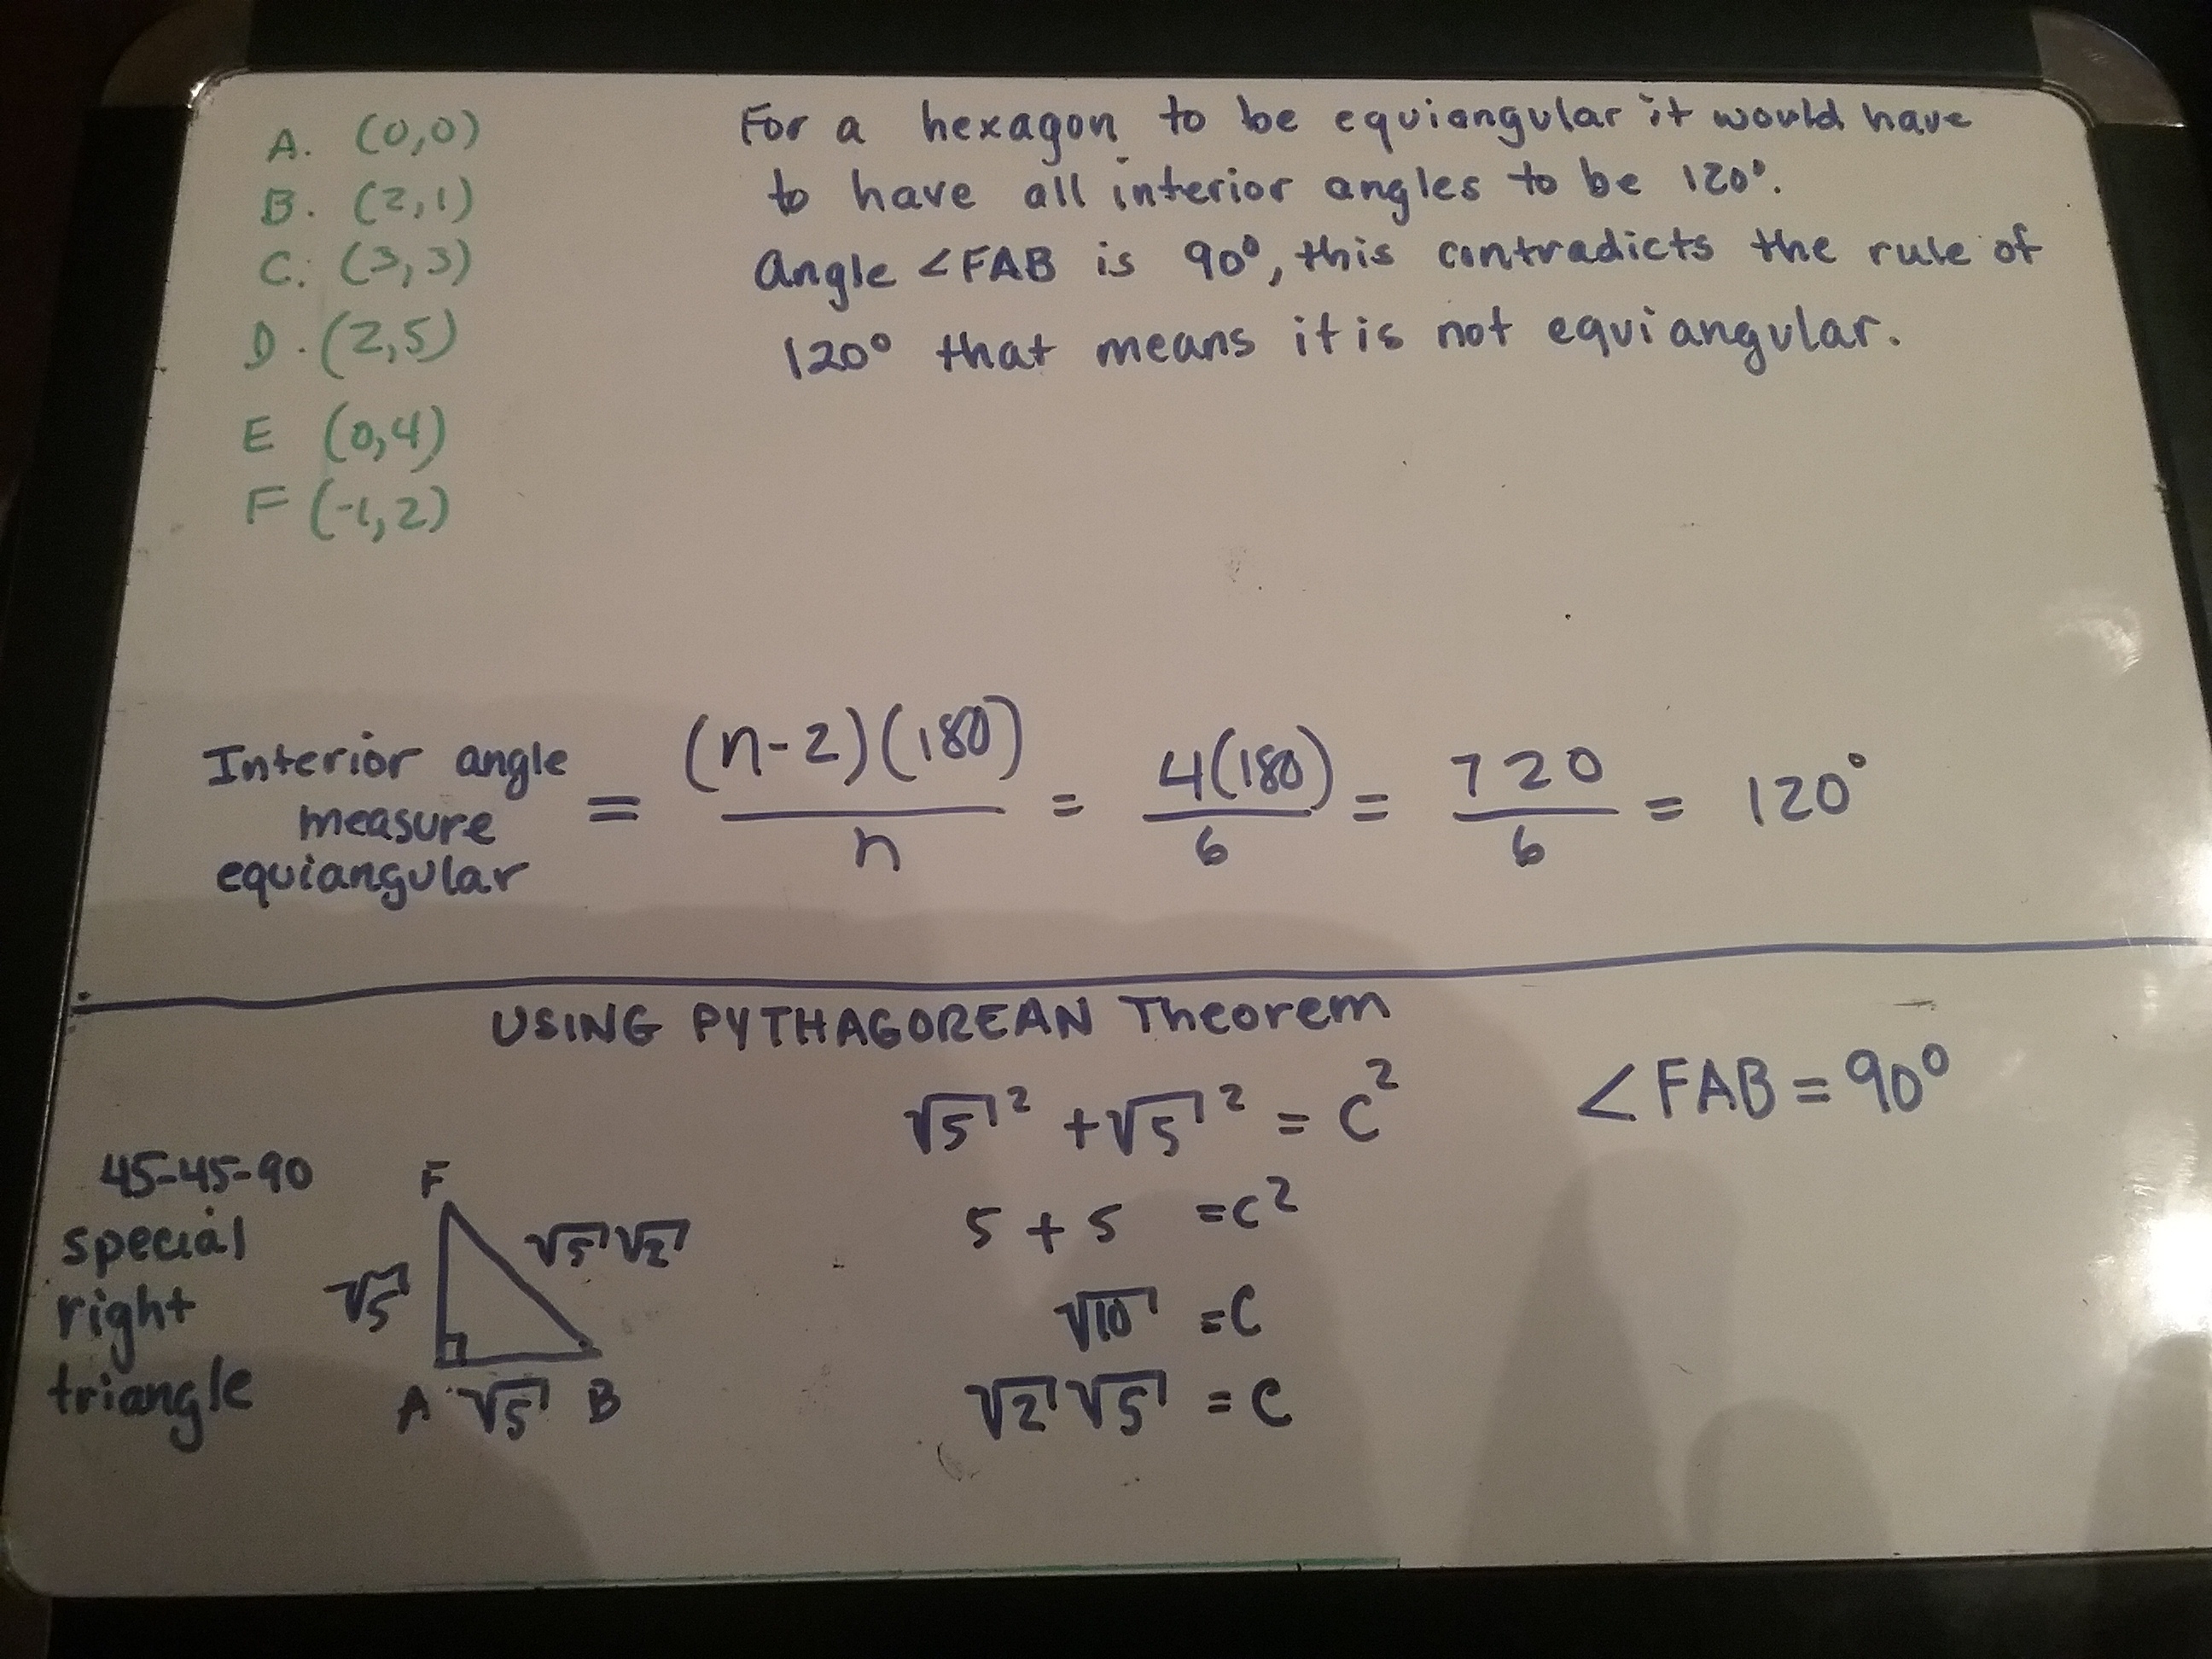 A. (0,0)
B. (2,1)
C. (3,3)
D. (2,5)
E (0,4)
F (-1,2)
For a hexagon to be equiangular it would have
to have all interior angles to be 120°.
Angle ∠FAB is 90°, this contradicts the rule of
120° that means it is not equiangular.
Interior angle
measure
equiangular
= (n-2)(180)/n = 4(180)/6 = 720/6 = 120°
USING PYTHAGOREAN Theorem
√5² + √5² = C²
5 + 5 = c²
√10 = C
√2 √5 = C
∠FAB = 90°
45-45-90
special
right
triangle
F
√5 √2
√5
A √5 B